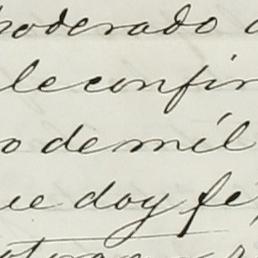 poderado
le confir
o de mil
ue doy fe,